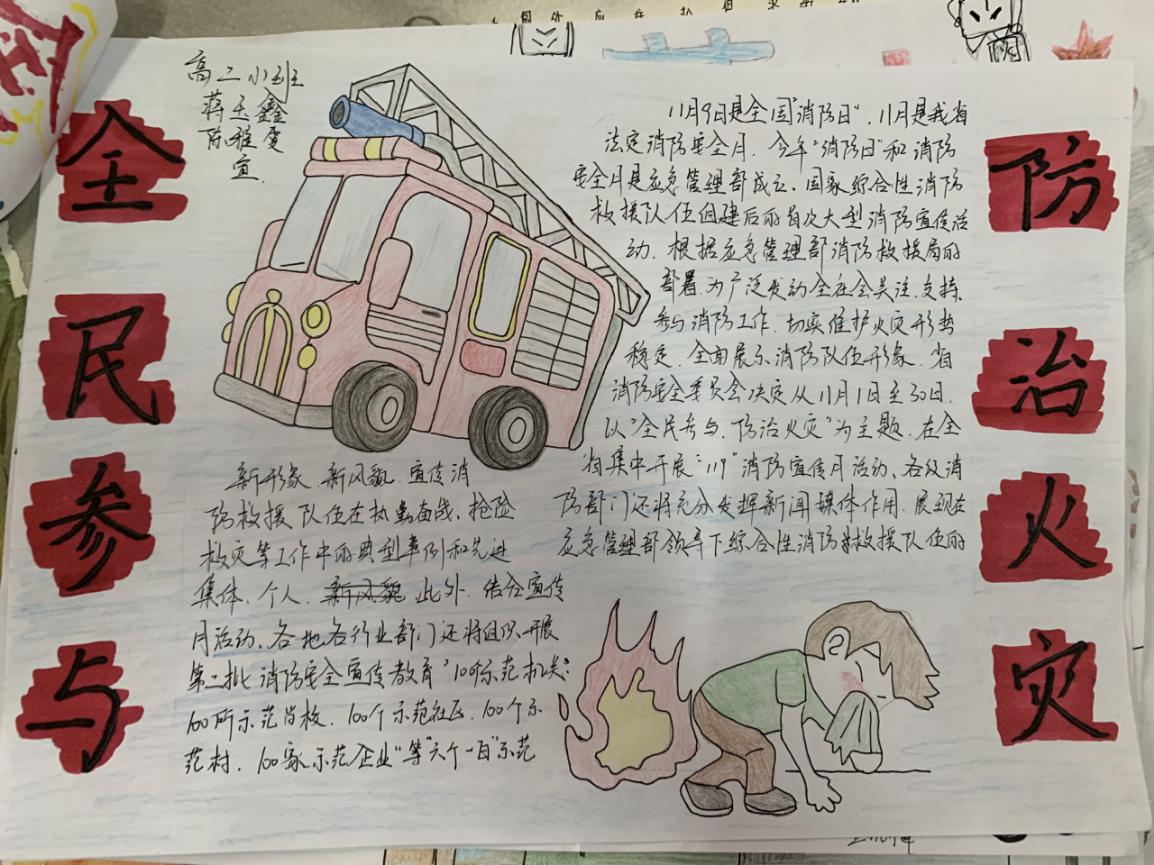 全民参与
防治火灾
高二小班
蒋玉鑫
陈雅雯
宣
11月9日是全国"消防日",11月是我省
法定消防安全月。今年"消防日"和消防
安全月是应急管理部成立、国家综合性消防
救援队伍组建后的首次大型消防宣传活
动。根据应急管理部消防救援局的
部署,为广泛发动全社会关注、支持、
参与消防工作,切实维护火灾形势
稳定,全面展示消防队伍形象,省
消防安全委员会决定从11月1日至30日,
以"全民参与、防治火灾"为主题,在全
省集中开展"119"消防宣传月活动,各级消
防部门还将充分发挥新闻媒体作用,展现在
应急管理部领导下综合性消防救援队伍的
新形象、新风貌,宣传消
防救援队伍在执勤奋战、抢险
救灾等工作中的典型事例和先进
集体、个人,新风貌 此外,结合宣传
月活动,各地各行业部门还将组织开展
第二批消防安全宣传教育"100示范机关:
100所示范学校、100个示范社区、100个示
范村、100家示范企业"等"六个一百"示范